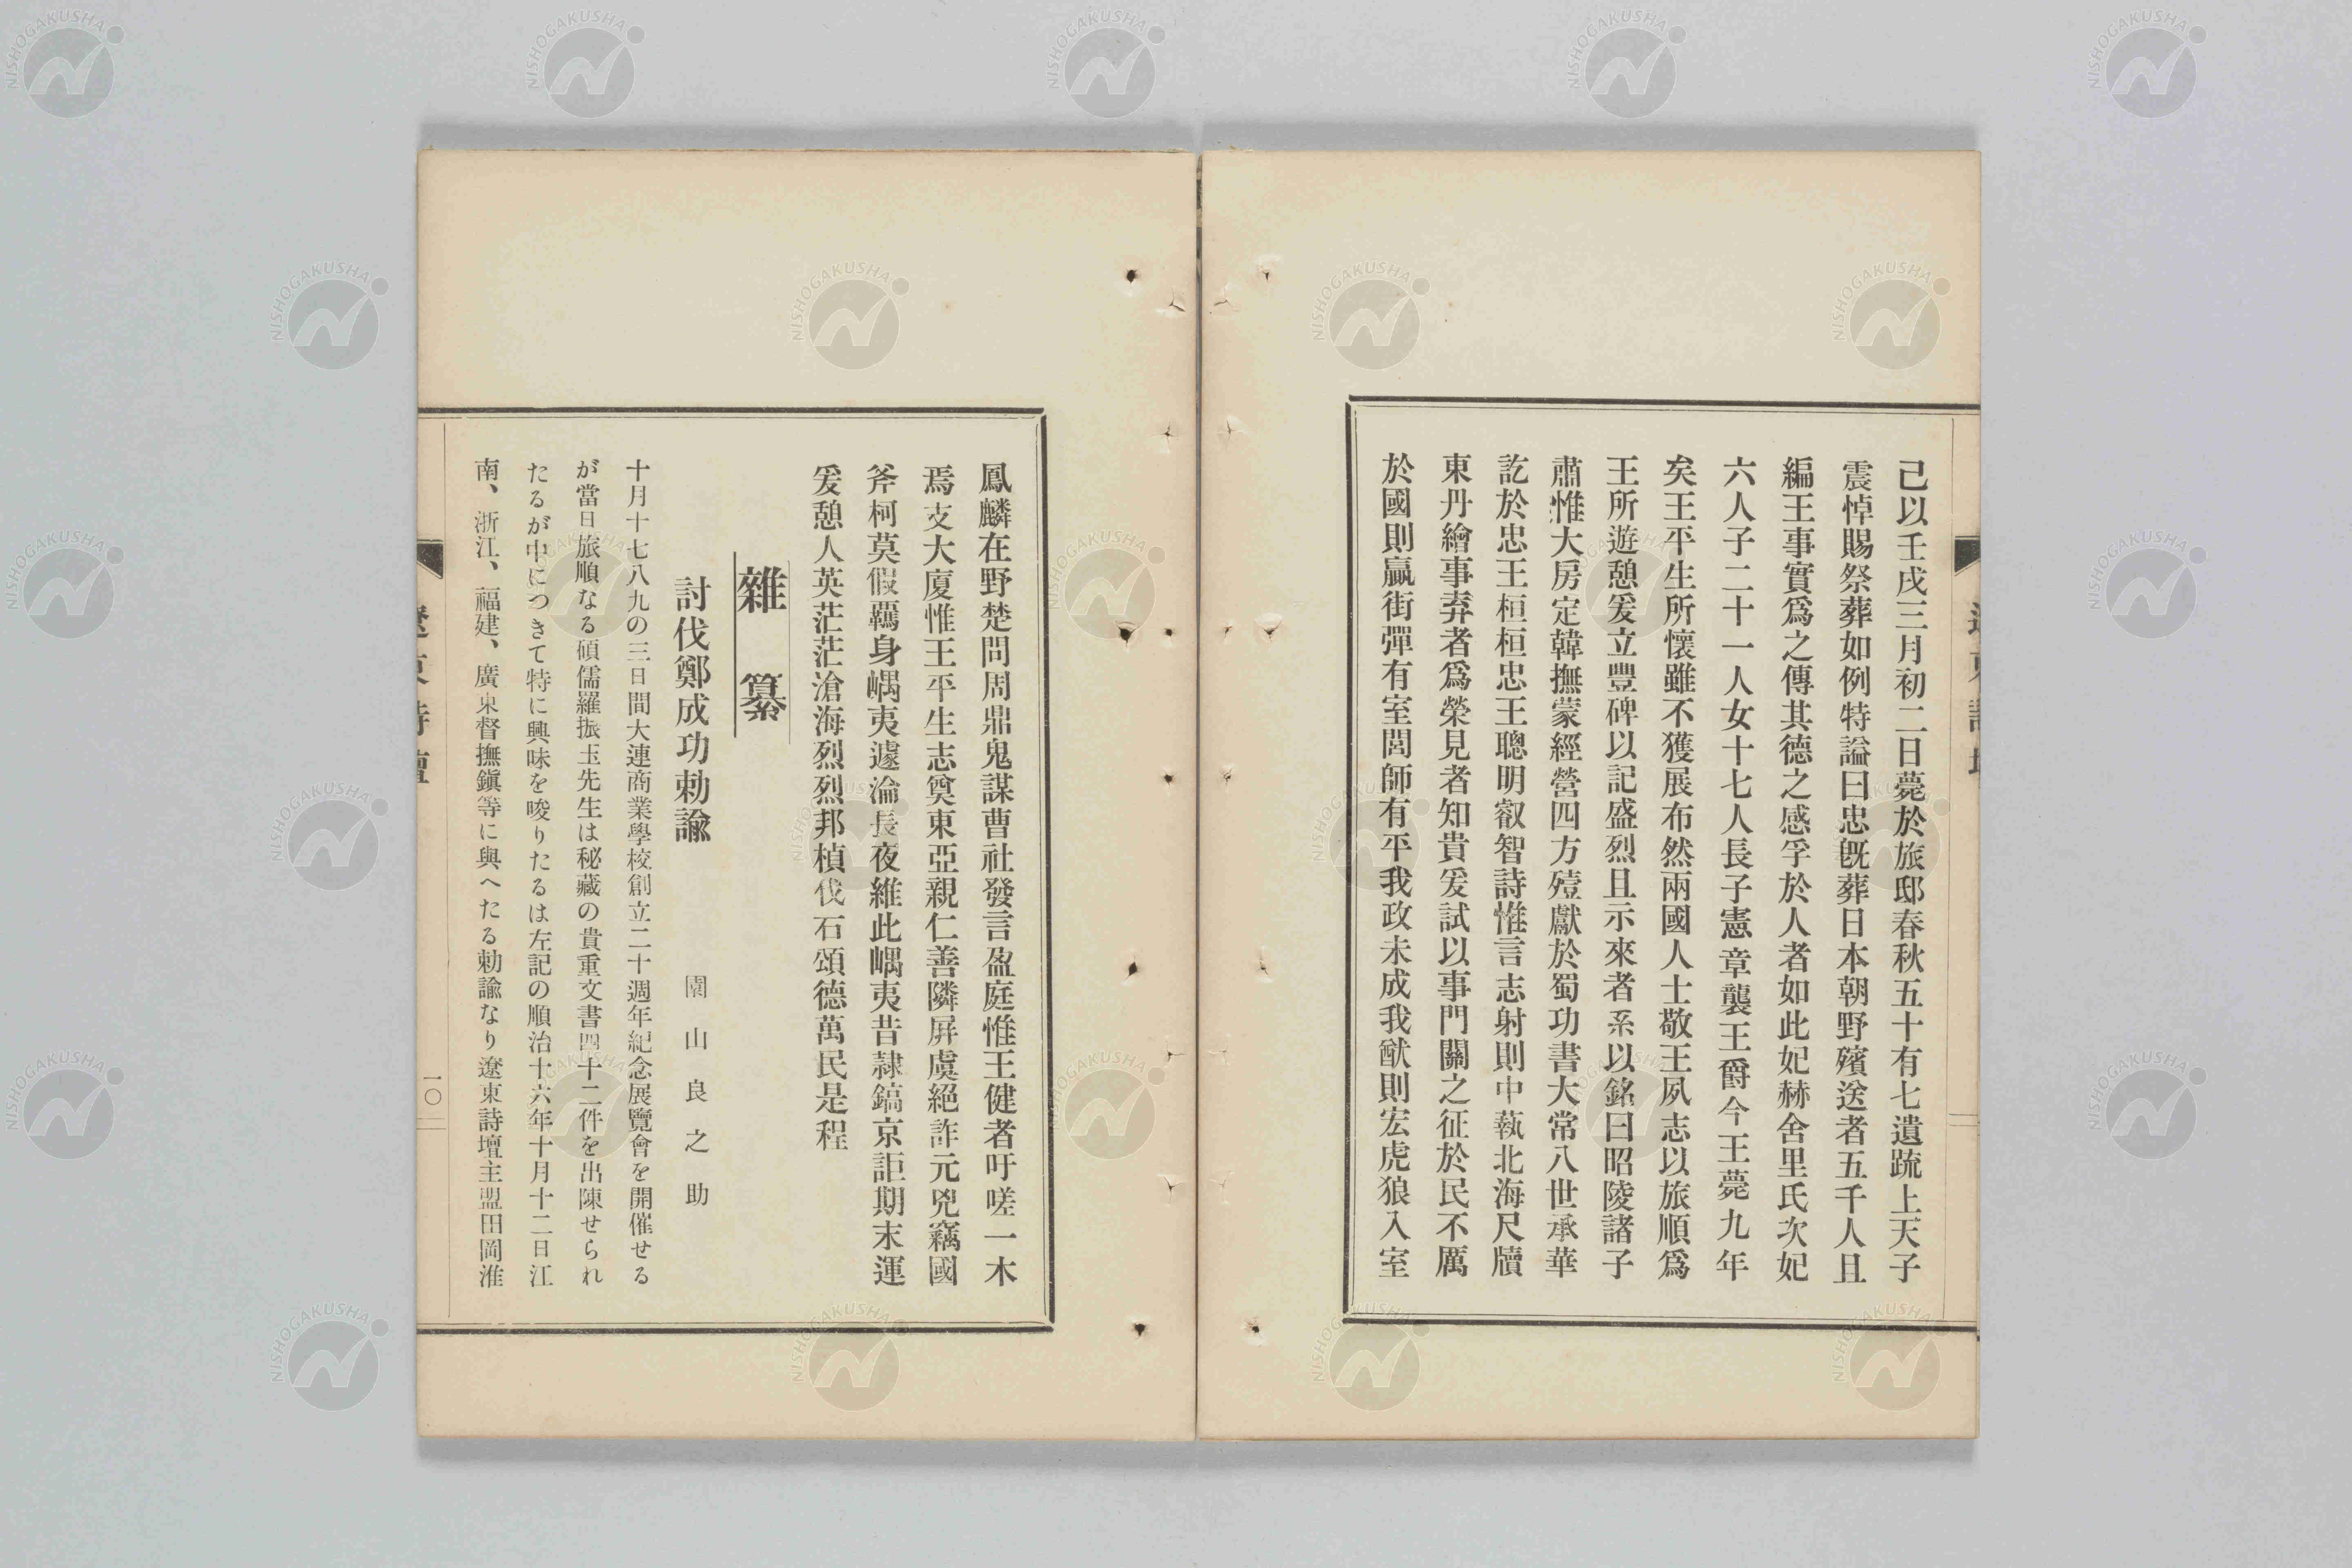 己以壬戌三月初二日薨於旅邸春秋五十有七遺疏上天子
震悼賜祭葬如例特謚曰忠旣葬日本朝野殯送者五千人且
編王事實爲之傳其德之感孚於人者如此妃赫舍里氏次妃
六人子二十一人女十七人長子憲章襲王爵今王薨九年
矣王平生所懷雖不獲展布然兩國人士敬王夙志以旅順爲
王所遊憩爰立豐碑以記盛烈且示來者系以銘曰昭陵諸子
肅惟大房定韓撫蒙經營四方殪獻於蜀功書大常八世承華
訖於忠王桓桓忠王聰明叡智詩惟言志射則中執北海尺牘
東丹繪事弆者爲榮見者知貴爰試以事門關之征於民不厲
於國則贏街彈有室閭師有平我政未成我猷則宏虎狼入室
鳳麟在野楚問周鼎鬼謀曹社發言盈庭惟王健者吁嗟一木
焉支大廈惟王平生志奠東亞親仁善隣屛虞絕詐元兇竊國
斧柯莫假羈身嵎夷遽淪長夜維此嵎夷昔隸鎬京詎期末運
爰憩人英茫茫滄海烈烈邦楨伐石頌德萬民是程
雜纂
討伐鄭成功勅諭 園山良之助
十月十七八九の三日間大連商業學校創立二十週年紀念展覽會を開催せる
が當日旅順なる碩儒羅振玉先生は秘藏の貴重文書四十二件を出陳せられ
たるが中につきて特に興味を唆りたるは左記の順治十六年十月十二日江
南、浙江、福建、廣東督撫鎭等に與へたる勅諭なり遼東詩壇主盟田岡淮
遼東詩壇
一〇